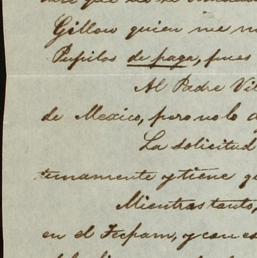 Gillow quien me m
Pupilos de paga, pues
Al Padre Vil
de Mexico, pero no lo d
La solicitud
ternamente y tiene qu
Mientras tanto,
en el Tecpam, y con es